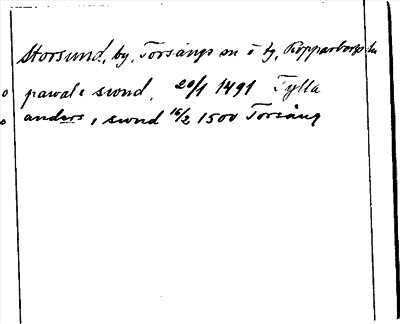 Storsund, by, Torsångs sn o tg, Kopparbergs län
pawal i swnd, 20/1 1491 Tylla
anders i swnd 16/2 1500 Torsång